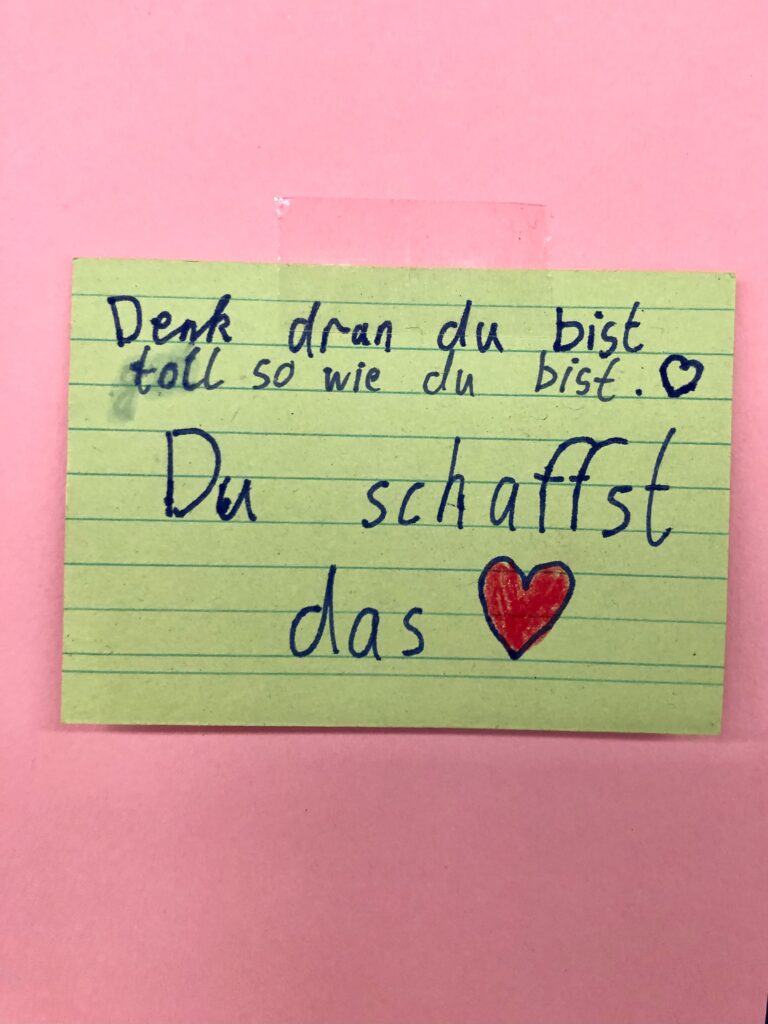 Denk dran du bist
toll so wie du bist. ♡
Du schaffst
das ♥